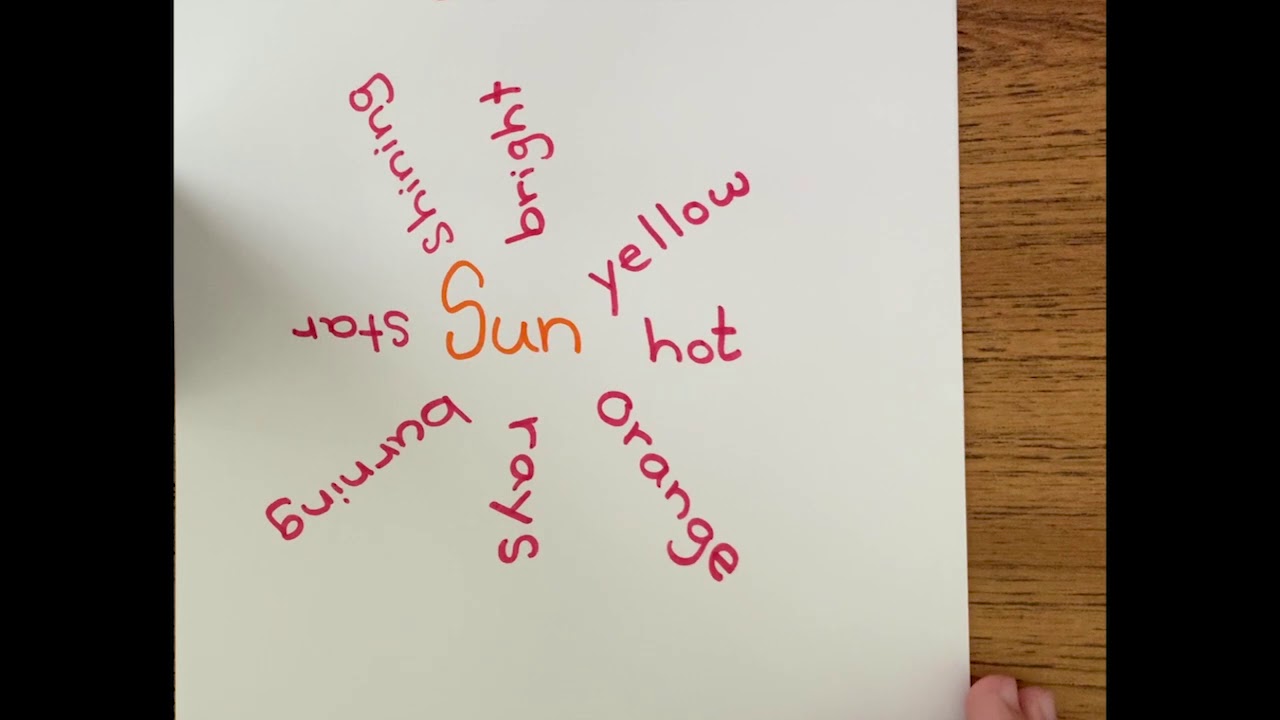 Sun
bright
yellow
hot
orange
rays
burning
star
shining